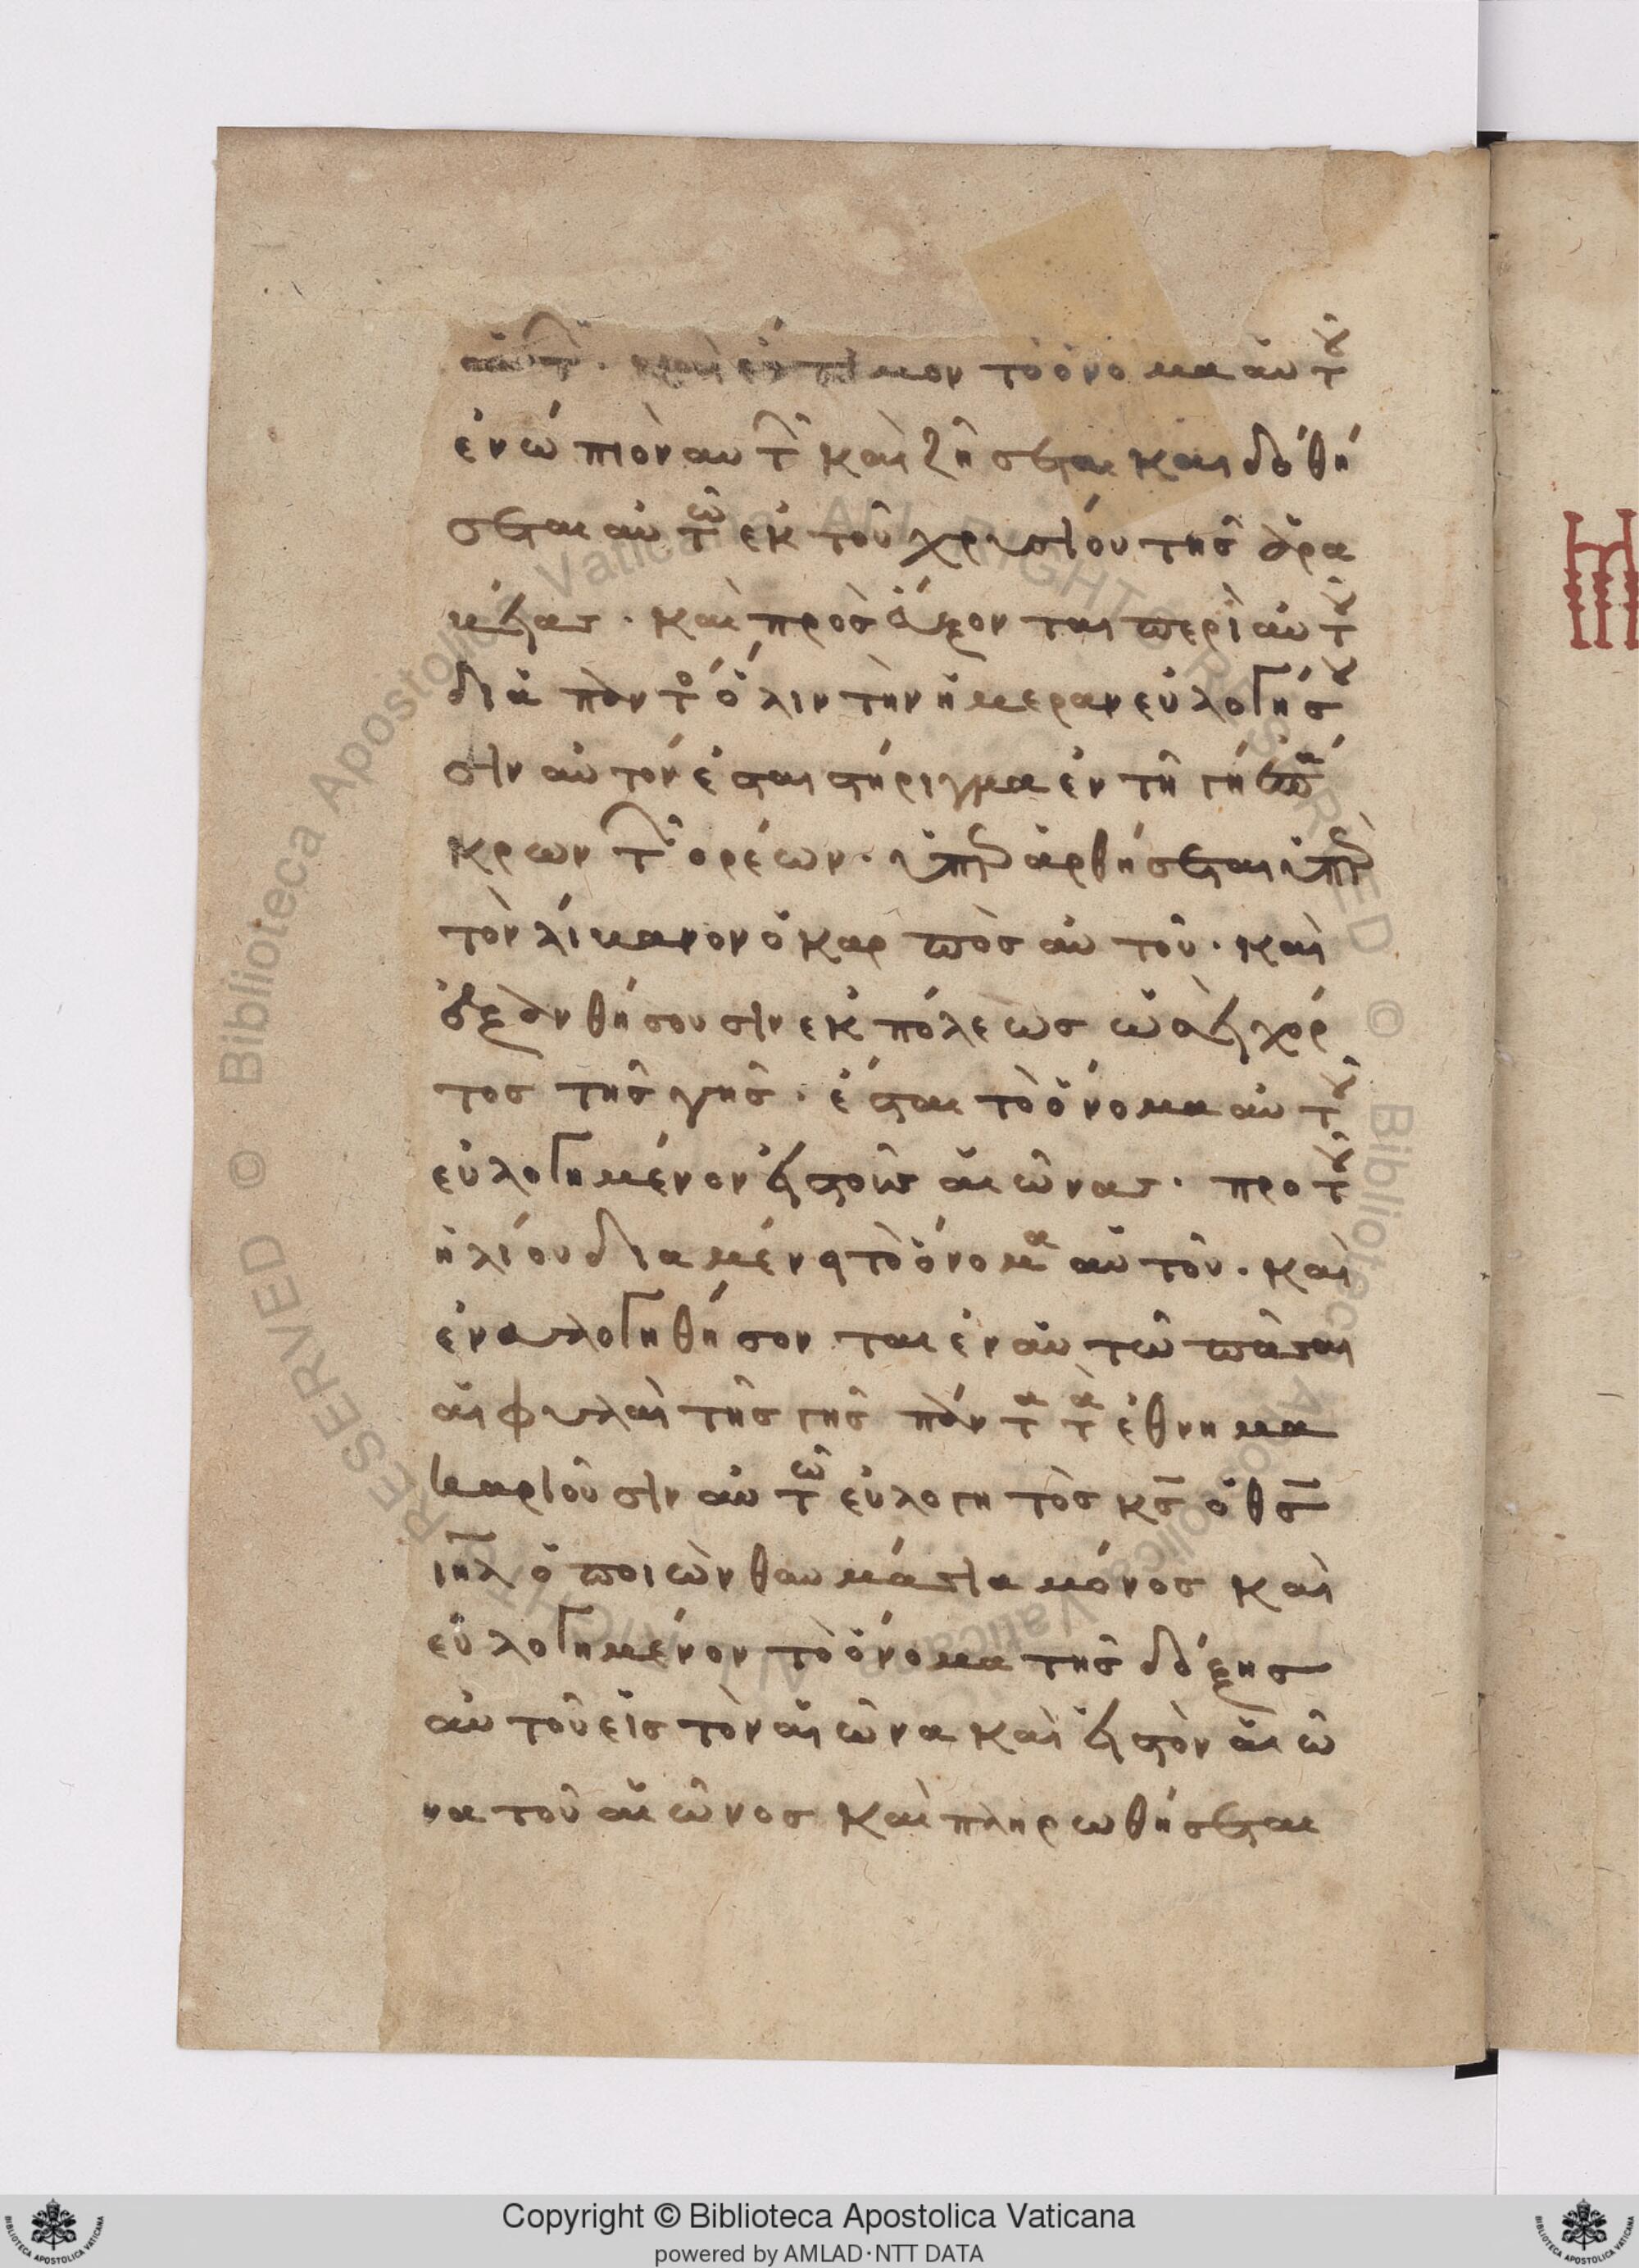 αὐτῶν· καὶ ἔντιμον τὸ ὄνομα αὐτοῦ
ἐνώπιον αὐτῶν καὶ ζήσεται και δοθή
σεται αὐτῶ ἐκ τοῦ χρυσίου τῆς ἀρα
βίας· καὶ προσεύξονται περὶ αὐτοῦ
διὰ παντὸς ὅλην τὴν ἡμεραν εὐλογήσου
σιν αὐτόν ἔσται στήριγμα ἐν τῆ γῆ ἐπ ἄ
κρων τῶν ὀρέων· ὑπεραρθήσεται ὑπὲρ
τὸν λίβανον ὁ καρπὸς αὐτοῦ· καὶ
ἐξανθήσουσιν ἐκ πόλεως ὡσεὶ χόρ
τος τῆς γῆς· ἔσται τὸ ὄνομα αὐτοῦ
εὐλογημένον εἰς τοὺς αἰῶνας· προ τοῦ
ἡλίου διαμένει τὸ ὄνομα αὐτοῦ· καὶ
ἐνευλογηθήσονται ἐν αὐτῶ πᾶσαι
αἱ φυλαὶ τῆς γῆς πάντα τὰ ἔθνη μα
καριοῦσιν αὐτῶ εὐλογητὸς κς ὁ θς
ιηλ ὁ ποιῶν θαυμάσια μόνος καὶ
εὐλογημένον τὸ ὄνομα τῆς δόξης
αὐτοῦ εἰς τὸν αἰῶνα καὶ εἰς τὸν αἰῶ
να τοῦ αἰῶνος καὶ πληρωθήσεται
Copyright © Biblioteca Apostolica Vaticana
powered by AMLAD·NTT DATA